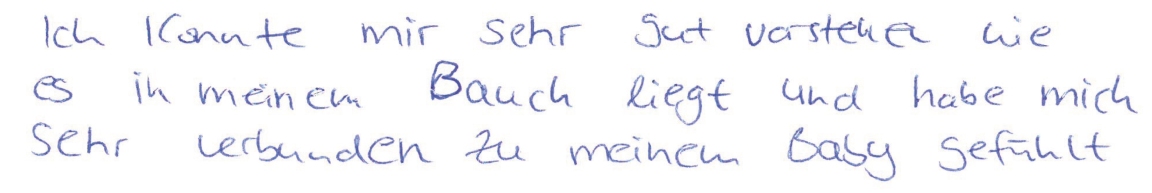 Ich konnte mir sehr gut vorstellen wie
es in meinem Bauch liegt und habe mich
sehr verbunden zu meinem Baby gefühlt